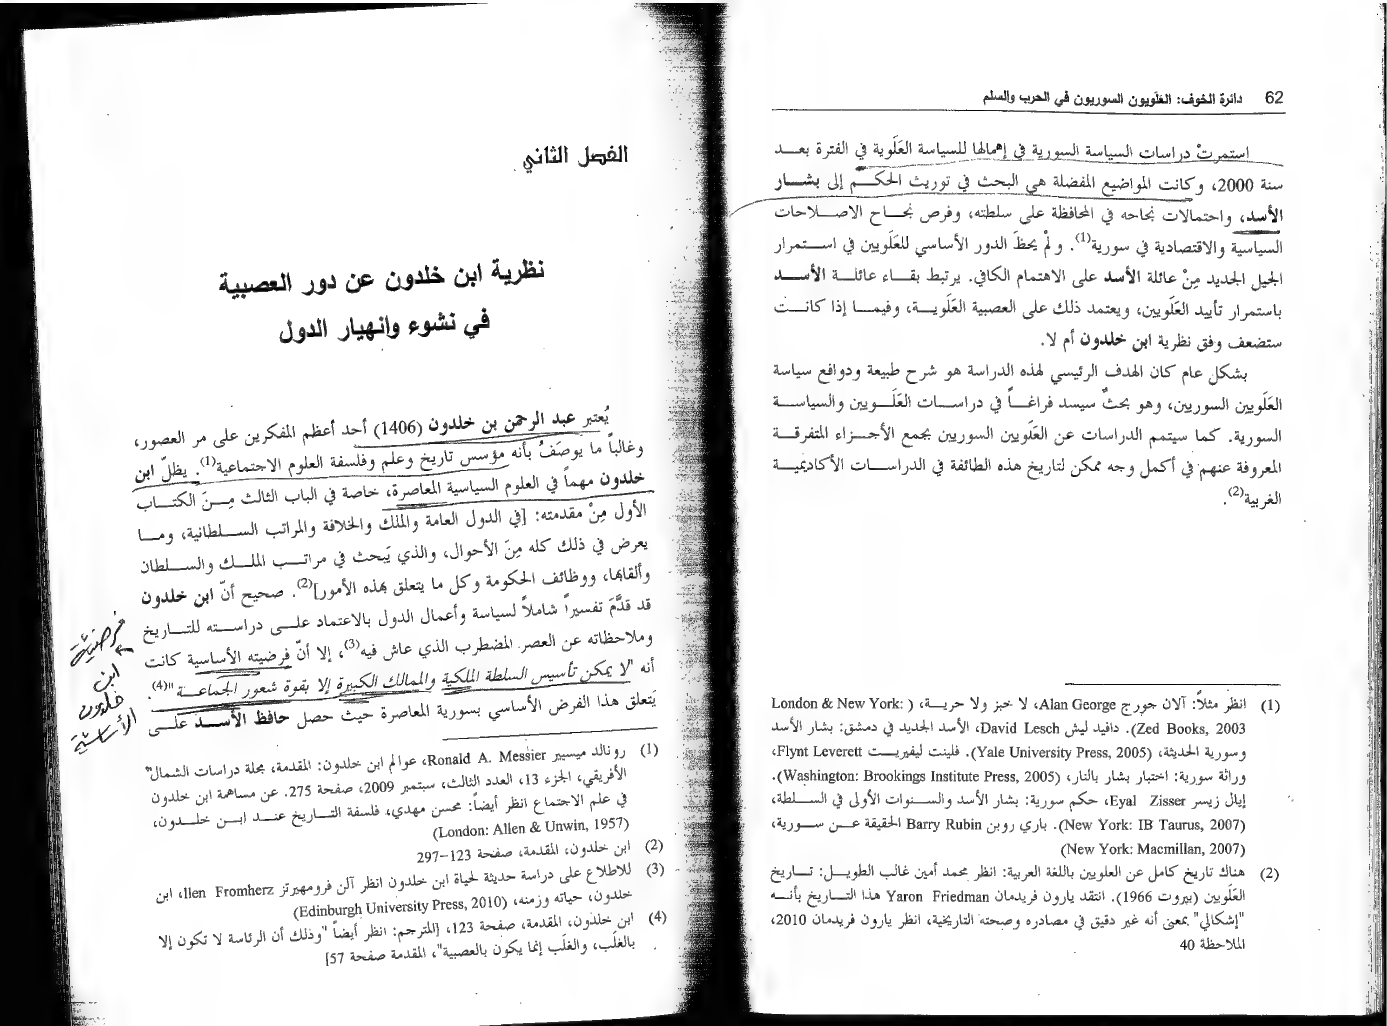 62 دائرة الخوف: العَلَويون السوريون في الحرب والسلم
استمرتْ دراسات السياسة السورية في إهمالها للسياسة العَلَوية في الفترة بعد
سنة 2000، وكانت المواضيع المفضلة هي البحث في توريث الحكم إلى بشار
الأسد، واحتمالات نجاحه في المحافظة على سلطته، وفرص نجاح الاصلاحات
السياسية والاقتصادية في سورية(1). ولمْ يحظَ الدور الأساسي للعَلَويين في استمرار
الجيل الجديد مِنْ عائلة الأسد على الاهتمام الكافي. يرتبط بقاء عائلة الأسد
باستمرار تأييد العَلَويين، ويعتمد ذلك على العصبية العَلَوية، وفيما إذا كانت
ستضعف وفق نظرية ابن خلدون أم لا.
بشكل عام كان الهدف الرئيسي لهذه الدراسة هو شرح طبيعة ودوافع سياسة
العَلَويين السوريين، وهو بحثٌ سيسد فراغاً في دراسات العَلَويين والسياسة
السورية. كما سيتمم الدراسات عن العَلَويين السوريين بجمع الأجزاء المتفرقة
المعروفة عنهم في أكمل وجه ممكن لتاريخ هذه الطائفة في الدراسات الأكاديمية
الغربية(2).
(1) انظر مثلاً: آلان جورج Alan George، لا خبز ولا حرية، (London & New York:
Zed Books, 2003). دافيد ليش David Lesch، الأسد الجديد في دمشق: بشار الأسد
وسورية الحديثة، (Yale University Press, 2005). فلينت ليفيريت Flynt Leverett،
وراثة سورية: اختبار بشار بالنار، (Washington: Brookings Institute Press, 2005).
إيال زيسر Eyal Zisser، حكم سورية: بشار الأسد والسنوات الأولى في السلطة،
(New York: IB Taurus, 2007). باري روبن Barry Rubin الحقيقة عن سورية،
(New York: Macmillan, 2007)
(2) هناك تاريخ كامل عن العلويين باللغة العربية: انظر محمد أمين غالب الطويل: تاريخ
العَلَويين (بيروت 1966). انتقد يارون فريدمان Yaron Friedman هذا التاريخ بأنه
"إشكالي" بمعنى أنه غير دقيق في مصادره وصحته التاريخية، انظر يارون فريدمان 2010،
الملاحظة 40
الفصل الثاني
نظرية ابن خلدون عن دور العصبية
في نشوء وانهيار الدول
يُعتبر عبد الرحمن بن خلدون (1406) أحد أعظم المفكرين على مر العصور،
وغالباً ما يوصَفُ بأنه مؤسس تاريخ وعلم وفلسفة العلوم الاجتماعية(1). يظلّ ابن
خلدون مهماً في العلوم السياسية المعاصرة، خاصة في الباب الثالث مِنَ الكتاب
الأول مِنْ مقدمته: [في الدول العامة والملك والخلافة والمراتب السلطانية، وما
يعرض في ذلك كله مِنَ الأحوال، والذي يَبحث في مراتب الملك والسلطان
وألقابها، ووظائف الحكومة وكل ما يتعلق بهذه الأمور](2). صحيح أنّ ابن خلدون
قد قدَّمَ تفسيراً شاملاً لسياسة وأعمال الدول بالاعتماد على دراسته للتاريخ
وملاحظاته عن العصر المضطرب الذي عاش فيه(3)، إلا أنّ فرضيته الأساسية كانت
أنه "لا يمكن تأسيس السلطة الملكية والممالك الكبيرة إلا بقوة شعور الجماعة"(4).
يَتعلق هذا الفرض الأساسي بسورية المعاصرة حيث حصل حافظ الأسد على
فرضية
ابن
خلدون
الأساسية
(1) رونالد ميسيير Ronald A. Messier، عوالم ابن خلدون: المقدمة، مجلة دراسات الشمال
الأفريقي، الجزء 13، العدد الثالث، سبتمبر 2009، صفحة 275. عن مساهمة ابن خلدون
في علم الاجتماع انظر أيضاً: محسن مهدي، فلسفة التاريخ عند ابن خلدون،
(London: Allen & Unwin, 1957)
(2) ابن خلدون، المقدمة، صفحة 123–297
(3) للاطلاع على دراسة حديثة لحياة ابن خلدون انظر آلن فرومهيرتز Ilen Fromherz، ابن
خلدون، حياته وزمنه، (Edinburgh University Press, 2010)
(4) ابن خلدون، المقدمة، صفحة 123، [المترجم: انظر أيضاً "وذلك أن الرئاسة لا تكون إلا
بالغلَب، والغلَب إنما يكون بالعصبية"، المقدمة صفحة 57]